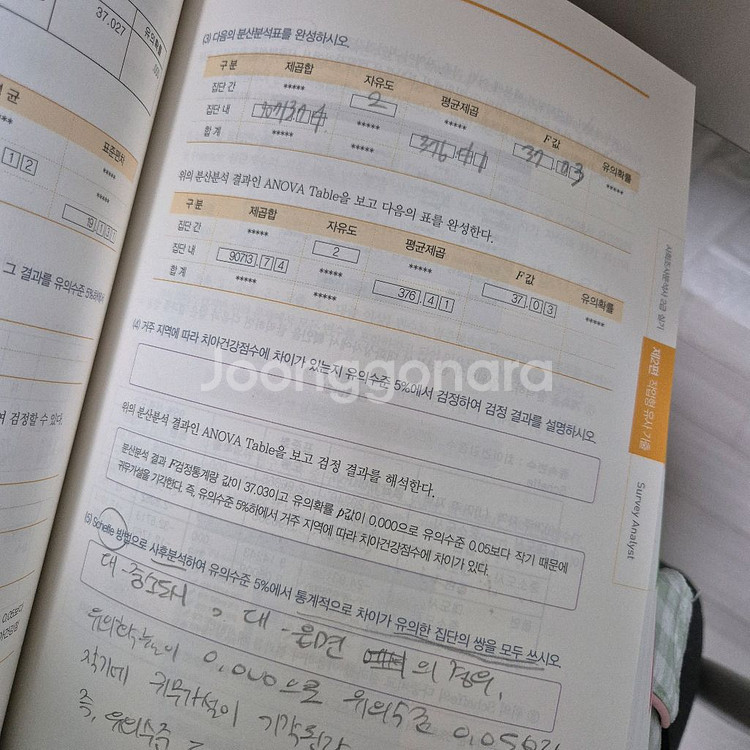 37.027
유의확률
(3) 다음의 분산분석표를 완성하시오.
구 분 제곱합 자유도 평균제곱 F 값 유의확률
집단 간 ***** 2 ***** 37.03 *****
집단 내 90713.74 ***** 376.41
합 계 ***** *****
위의 분산분석 결과인 ANOVA Table을 보고 다음의 표를 완성한다.
구 분 제곱합 자유도 평균제곱 F 값 유의확률
집단 간 ***** 2 ***** 37.03 *****
집단 내 90713.74 ***** 376.41
합 계 ***** *****
(4) 거주 지역에 따라 치아건강점수에 차이가 있는지 유의수준 5%에서 검정하여 검정 결과를 설명하시오.
위의 분산분석 결과인 ANOVA Table을 보고 검정 결과를 해석한다.
분산분석 결과 F검정통계량 값이 37.03이고 유의확률 p값이 0.000으로 유의수준 0.05보다 작기 때문에
귀무가설을 기각한다. 즉, 유의수준 5%하에서 거주 지역에 따라 치아건강점수에 차이가 있다.
(5) Scheffe 방법으로 사후분석하여 유의수준 5%에서 통계적으로 차이가 유의한 집단의 쌍을 모두 쓰시오.
대-중소도시, 대-읍면 의 경우,
유의확률이 0.000으로 유의수준 0.05보다
작기에 귀무가설이 기각된다
즉, 유의수준
균
표준편차
*****
12
*****
19.137
그 결과를 유의수준 5%하에서
여 검정할 수 있다.
0.05보다
사회조사분석사 2급 실기
제2편 작업형 유사 기출
Survey Analyst
Joonggonara